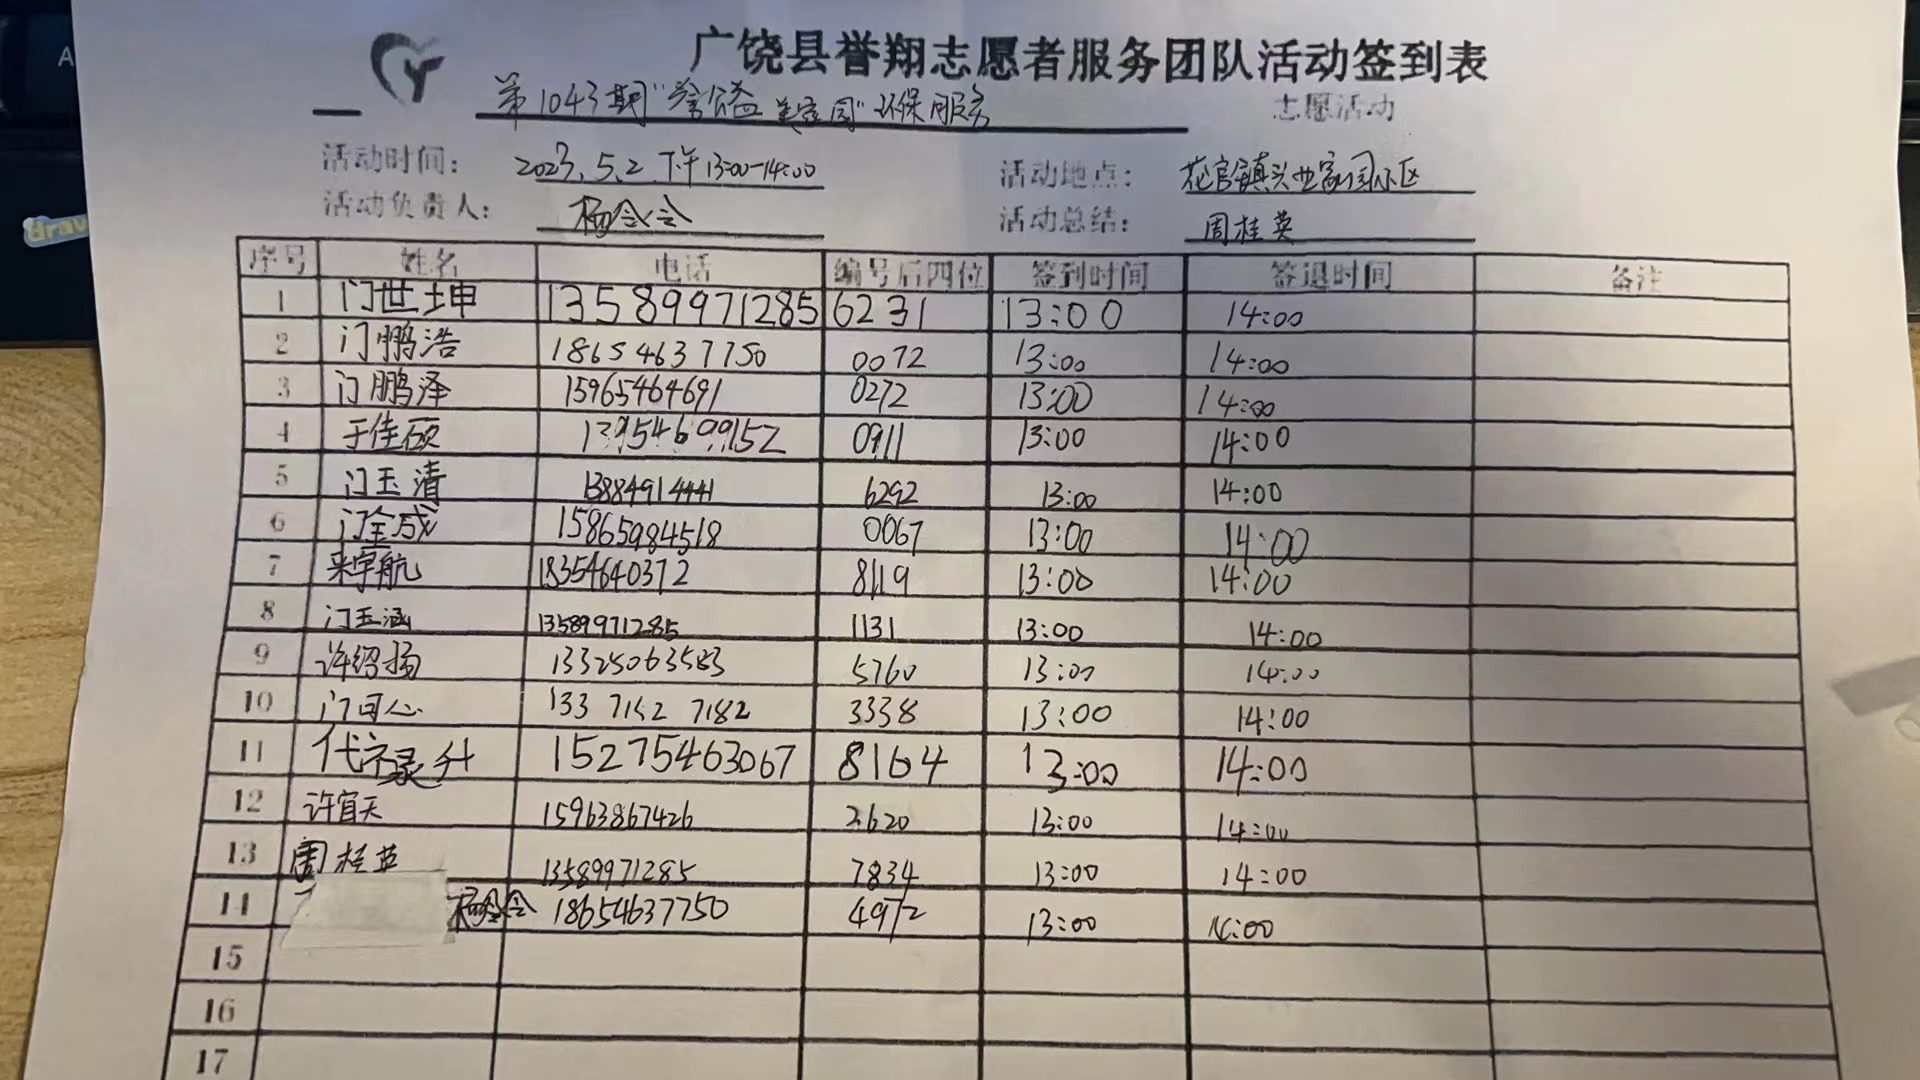 广饶县誉翔志愿者服务团队活动签到表
第1043期"誉公益 美家园"环保服务 志愿活动
活动时间: 2023.5.2 下午13:00-14:00 活动地点: 花官镇兴业家园小区
活动负责人: 杨会会 活动总结: 周桂英
序号 姓名 电话 编号后四位 签到时间 签退时间 备注
1 门世坤 13589971285 6231 13:00 14:00
2 门鹏浩 18654637750 0072 13:00 14:00
3 门鹏泽 15965464691 0272 13:00 14:00
4 于佳硕 13954699152 0911 13:00 14:00
5 门玉清 13884914441 6292 13:00 14:00
6 门全成 15865984518 0067 13:00 14:00
7 来宇航 18354640372 8119 13:00 14:00
8 门玉涵 13589971285 1131 13:00 14:00
9 许绍扬 13325063583 5760 13:00 14:00
10 门可心 133 7152 7182 3338 13:00 14:00
11 代禄升 15275463067 8164 13:00 14:00
12 许宜天 15963867426 2620 13:00 14:00
13 周桂英 13589971285 7834 13:00 14:00
14 杨会会 18654637750 4972 13:00 14:00
15
16
17